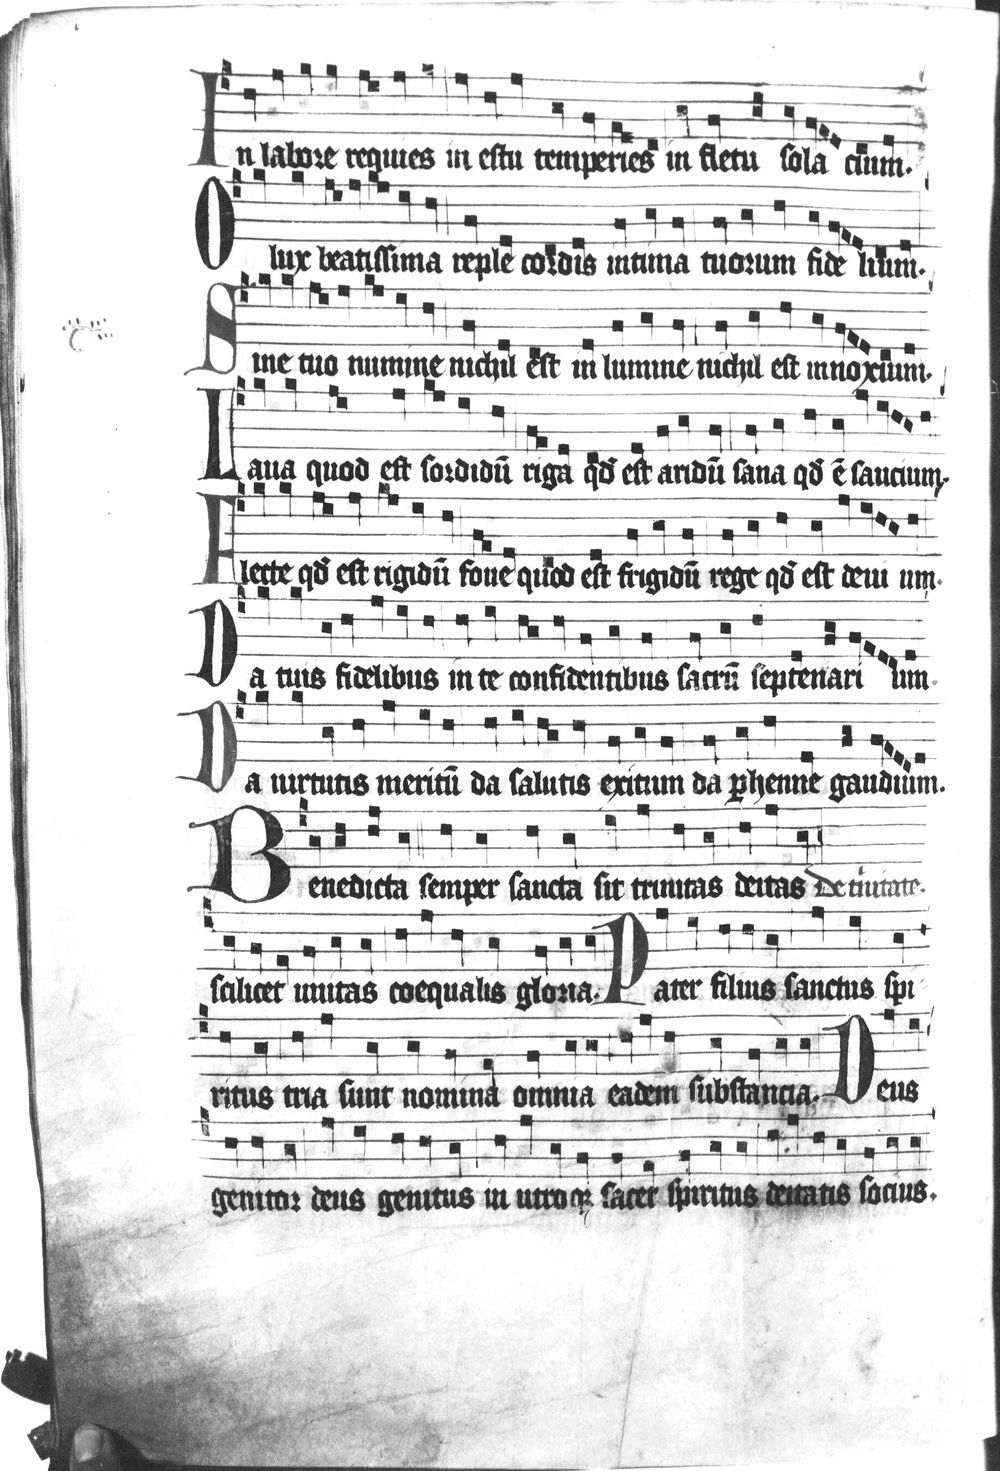 In labore requies in estu temperies in fletu sola cium.
O lux beatissima reple cordis intima tuorum fide lium.
Sine tuo numine nichil est in lumine nichil est innoxium.
Laua quod est sordidū riga qd̄ est aridū sana qd̄ ē saucium.
Flecte qd̄ est rigidū foue quod est frigidū rege qd̄ est deui um.
Da tuis fidelibus in te confidentibus sacrū septenari um.
Da uirtutis meritū da salutis exitum da ꝑhenne gaudium.
Benedicta semper sancta sit trinitas deitas De t'nitate.
scilicet unitas coequalis gloria. Pater filius sanctus spi
ritus tria sunt nomina omnia eadem substancia. Deus
genitor deus genitus in utroqꝫ sacer spiritus deitatis socius.